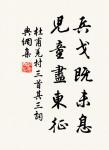 兵戈既未息
兒童盡東征
杜甫羌村三首其三詞
典網集